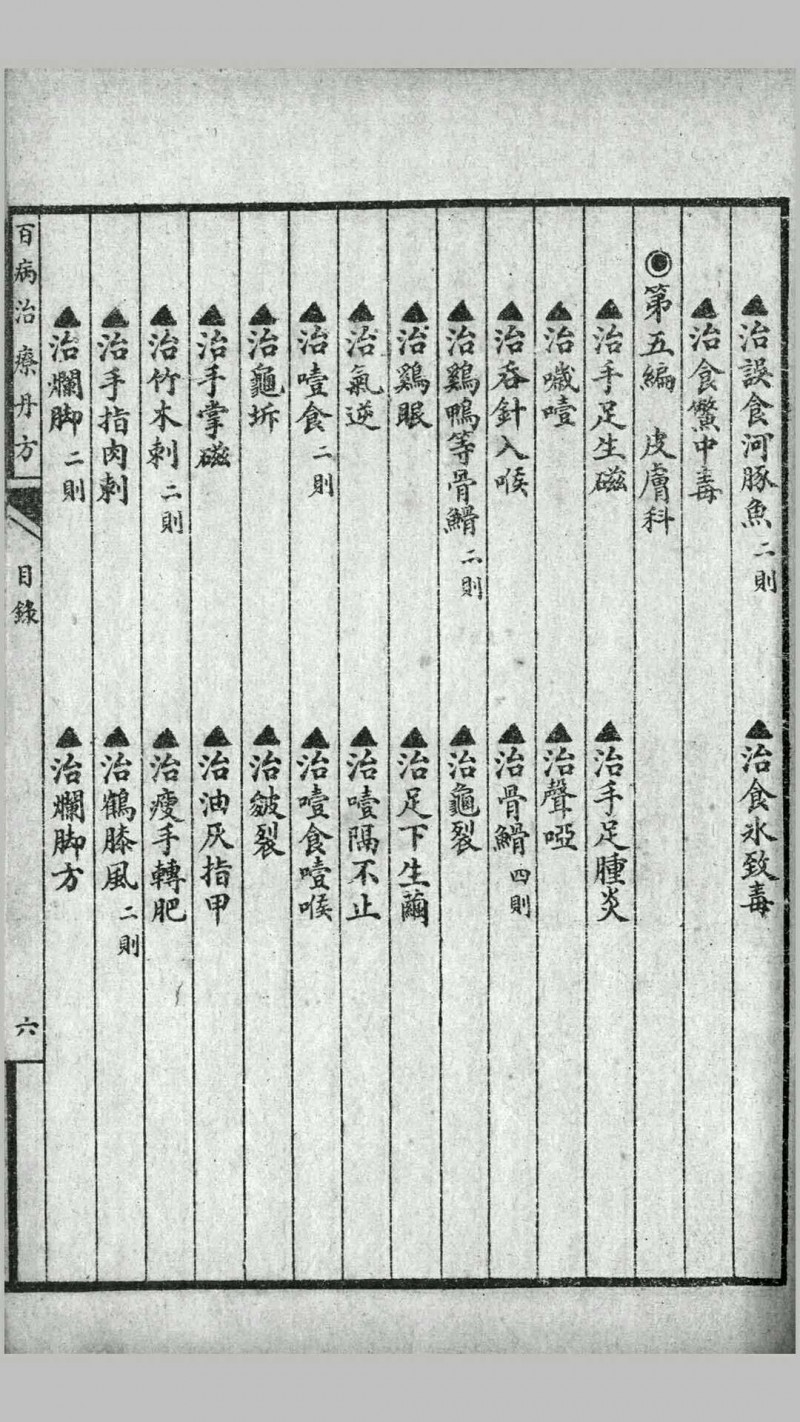 ▲治誤食河豚魚 二則 ▲治食冰致毒
▲治食鱉中毒
◉第五編 皮膚科
▲治手足生磁 ▲治手足腫炎
▲治噦噎 ▲治聲啞
▲治吞針入喉 ▲治骨鯁 四則
▲治鷄鴨等骨鯁 二則 ▲治龜裂
▲治鷄眼 ▲治足下生繭
▲治氣逆 ▲治噎隔不止
▲治噎食 二則 ▲治噎食噎喉
▲治龜坼 ▲治皴裂
▲治手掌磁 ▲治油灰指甲
▲治竹木刺 二則 ▲治瘦手轉肥
▲治手指肉刺 ▲治鶴膝風 二則
▲治爛脚 二則 ▲治爛脚方
百病治療丹方 目錄 六